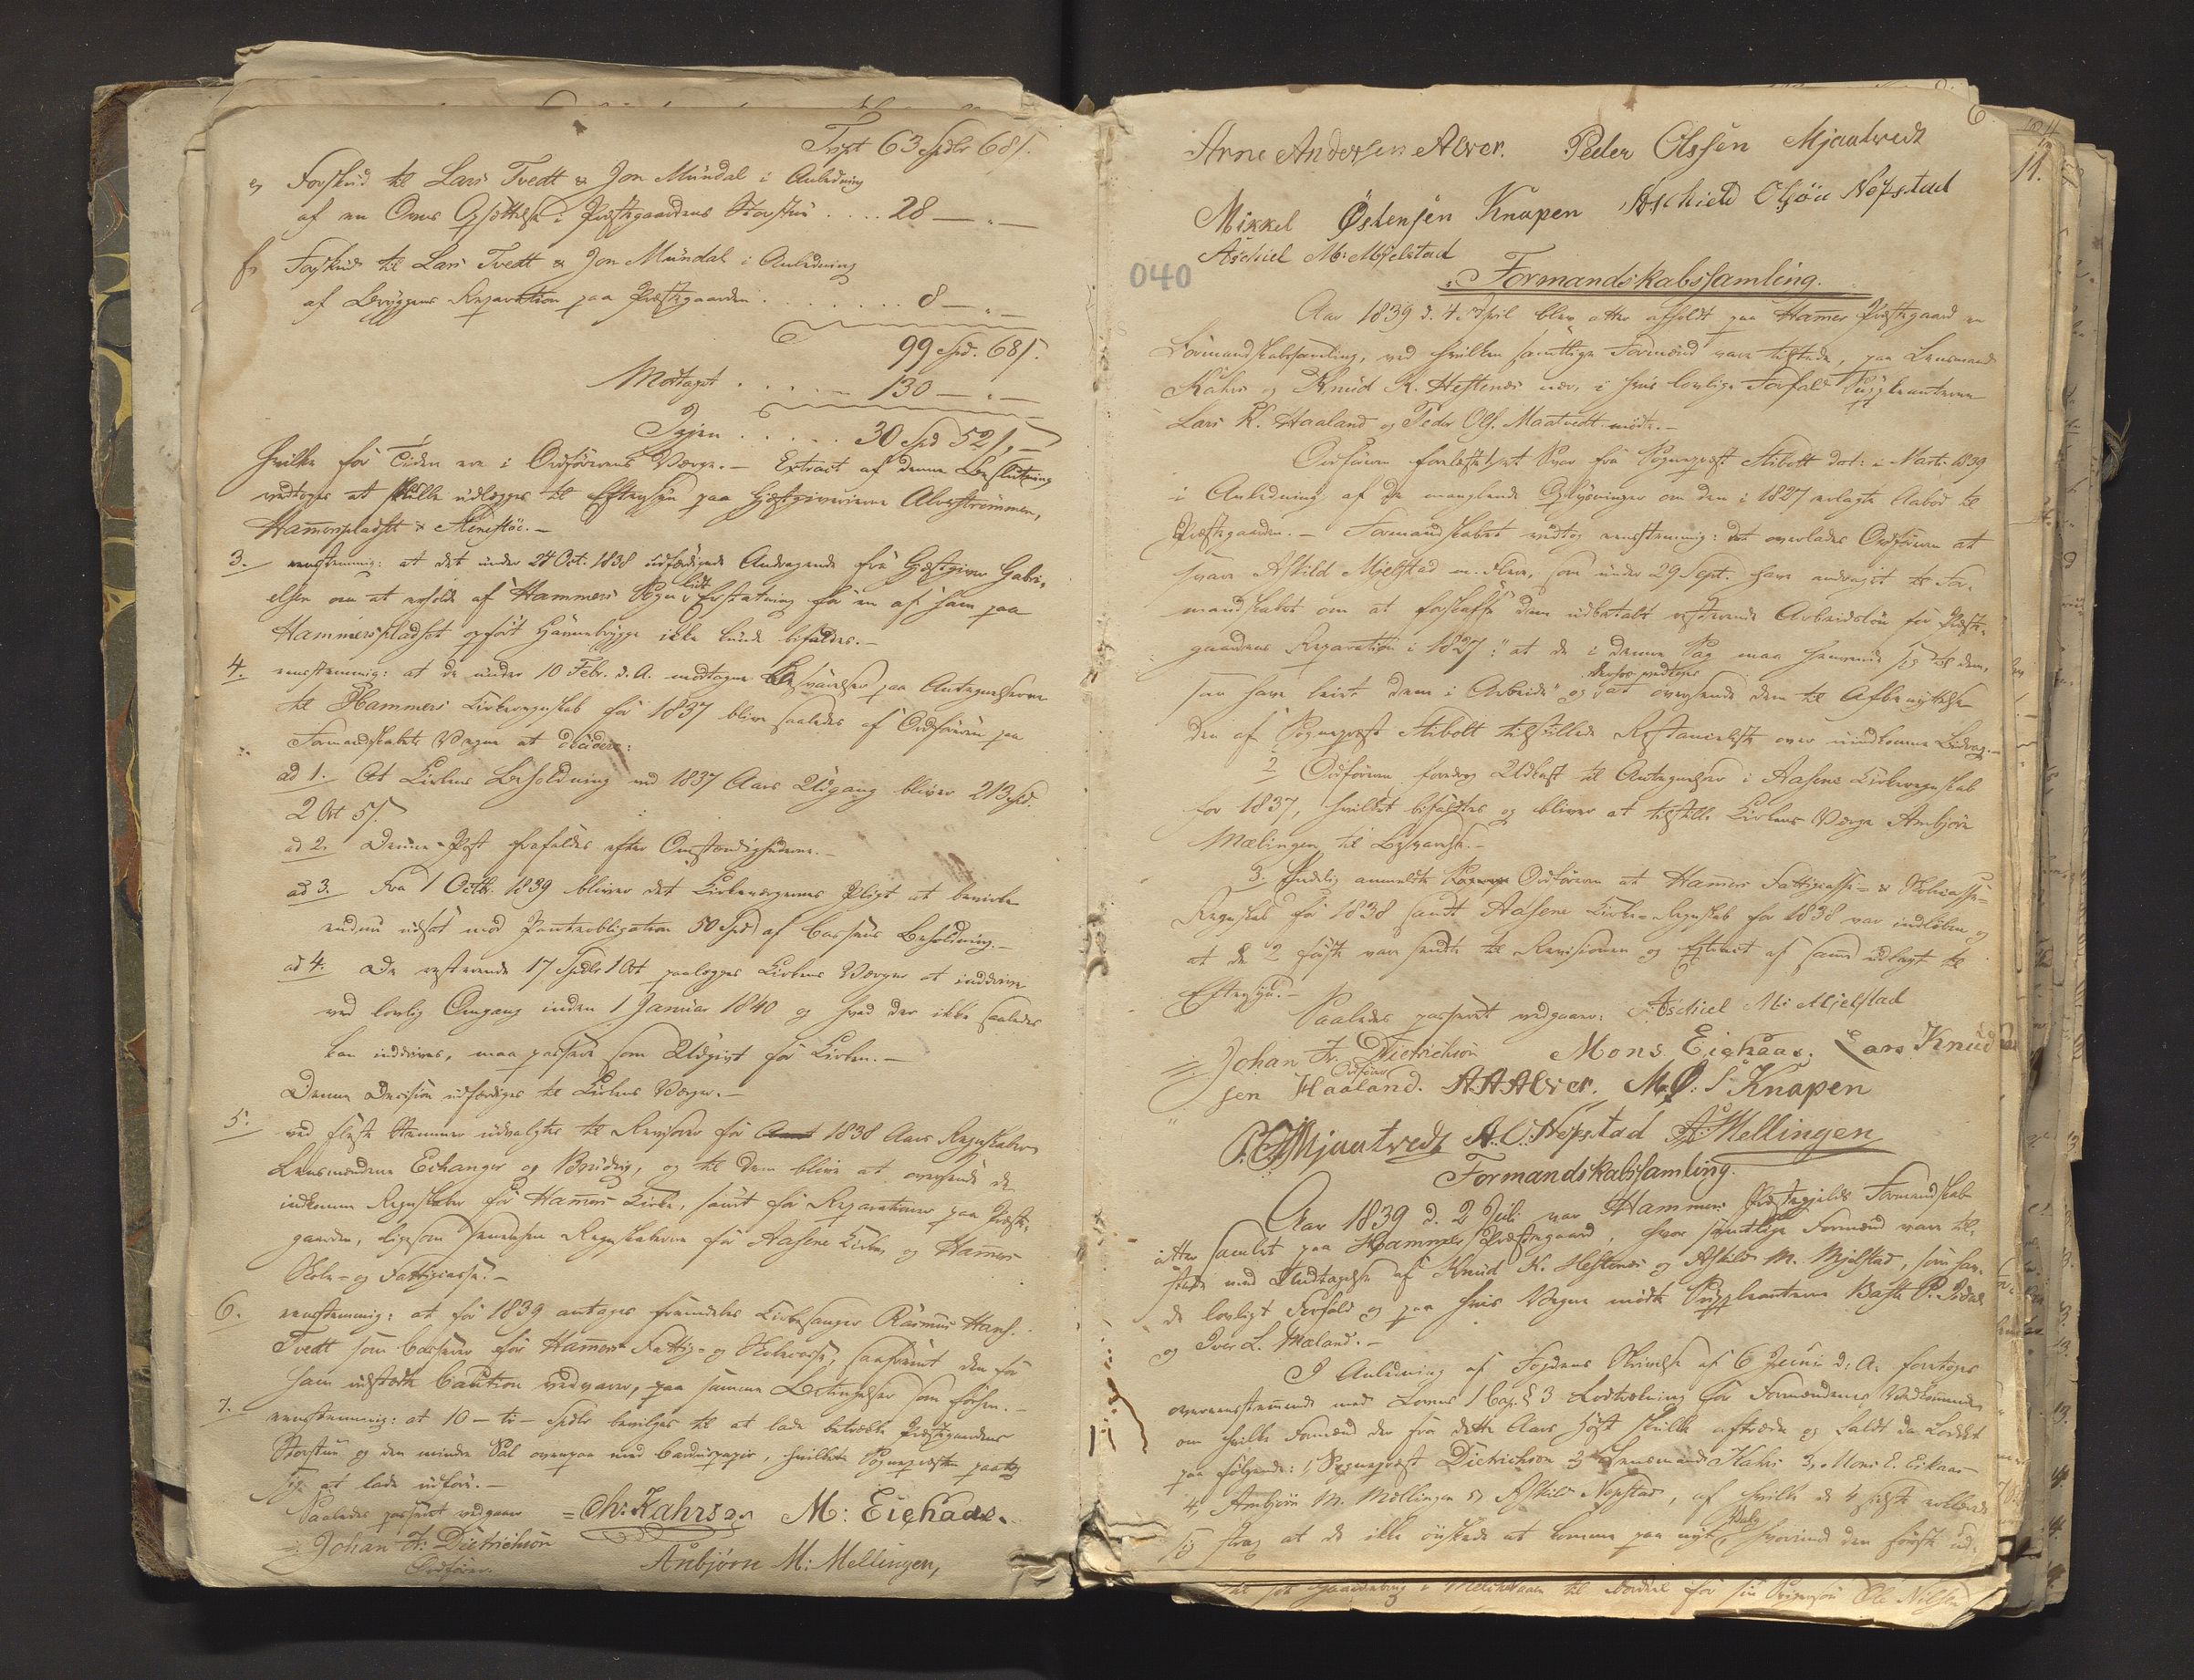 Trspt 63 Spdlr 68 s.
e, Forskud til Lars Tvedt & Jon Mundal i Anledning
af en Ovns Opsættelse i Præstegaardens Storstue .... 28 — „ —
f, Forskud til Lars Tvedt & Jon Mundal i Anledning
af Bryggens Reparation paa Præstegaarden ........ 8 — „ —
99 Spd. 68 s.
Modtaget ..... 130 — „ —
Igjen ..... 30 Spd 52 s. —
hvilke for Tiden ere i Ordførerens Værge. — Extract af denne Beslutning
vedtoges at skulle udlægges til Eftersyn paa Gjæstgiverierne Alverstrømmen,
Hammerspladset &
3. eenstemmig: at det under 24 Oct. 1838 udfærdigede Andragende fra Gjæstgiver Gabri-
elsen om at erholde af Hammers Sogn lidt Erstatning for en af ham paa
Hammerspladset opført ikke kunde bifaldes. —
4. eenstemmig: at de under 10 Febr. d. A. modtagne Besvarelser paa Antegnelserne
til Hammers Kirkeregnskab for 1837 blive saaledes af Ordføreren paa
Formandskabets Vegne at decidere:
ad 1. At Kirkens Beholdning ved 1837 Aars Udgang bliver 213 Spd.
2 Ort 5 s.
ad 2. Denne Post frafaldes efter Omstændighederne. —
ad 3. Fra 1 Octbr. 1839 bliver det Kirkeværgernes Pligt at bevirke
endnu udsat mod Panteobligation 50 Spd af Cassens Beholdning. —
ad 4. De resterende 17 Spdlr 1 Ort paalægges Kirkens Værger at inddrive
ved lovlig Omgang inden 1 Januar 1840 og hvad der ikke saaledes
kan inddrives, maa passere som Udgivt for Kirken. —
Denne Decision udfærdiges til Kirkens Værger. —
5. ved fleste Stemmer udvalgtes til Revisorer for 1838 Aars Regnskaber
Lensmændene Echanger og og til dem blive at oversende de
indkomne Regnskaber for Hammers Kirke, samt for Reparationer paa Præste-
gaarden, ligesom Regnskaberne for Aasene Kirke og Hammers
Skole- og Fattigcasse. —
6. eenstemmig: at for 1839 antages fremdeles Kirkesanger Rasmus Hans.
Tvedt som Casserer for Hammers Fattig- og Skolecasse, saafremt den for
ham udstædte Caution vedvarer, paa samme Betingelser som forhen. —
7. eenstemmig: at 10 — ti — Spdlr bevilges til at lade betrække Præstegaardens
Storstue og den mindre Sal ovenpaa med hvilket Sognepræsten paatog
sig at lade udføre. —
Saaledes passeret vedgaaer = Ch: Kahrs M: Eichaas.
Johan Fr: Dietrichson
Ordfører. Anbjørn M: Mellingen,
6
Arne Andersen Alver. Peder Olssen Mjaatvedt
11.
Mikkel Østensen Knapen Aschield Olsøn Nøpstad
Aschiel M: Mjelstad
040
Formandskabssamling.
Aar 1839 d. 4 April blev atter afholdt paa Hamer Præstegaard en
Formandskabssamling, ved hvilken samtlige Formænd vare tilstæde, paa Lensmand
Kahrs og Knud K. Hestenes nær, i hvis lovlige Forfald Suppleanterne
Lars K. Haaland og Peder Ols. Maatvedt mødte. —
Ordføreren forelæste et Svar fra Sognepræst Stibolt dat: i Marts 1839
i Anledning af de manglende Oplysninger om den i 1827 erlagte Aabod til
Præstegaarden. — Formandskabet vedtog eenstemmig: det overlades Ordføreren at
svare Askild Mjelstad m. flere, som under 29 Sept. have andraget til For-
mandskabet om at forskaffe dem udbetalt resterende Arbeidsløn for Præste-
gaardens Reparation i 1827: "at de i denne Sag maa henvende sig til dem,
som have leiet dem i Arbeide" og at oversende dem til Afbenyttelse
den af Sognepræst Stibolt tilstillede Restanceliste over uindkomne Bidrag. —
2 Ordføreren foredrog Udkast til Antegnelser i Aasene Kirkeregnskab
for 1837, hvilket bifaldtes og bliver at tilstille Kirkens Værge Anbjørn
Mælingen til Besvarelse. —
3. Endelig anmeldte Ordføreren at Hamers Fattigcasse- & Skolecasse-
Regnskab for 1838 samt Aasene Kirke-Regnskab for 1838 var indløben og
at de 2 første vare sendte til Revisionen og Extract af samme udlagt til
Eftersyn. —
Saaledes passeret vedgaaer: Aschiel M: Mjelstad
Johan Fr. Dietrichson Mons Eichaas. Lars Knud
Ordfører
sen Haaland. A A Alver. M. Ø: S: Knapen
P. O. Mjaatvedt A. O. Nøpstad A. Mellingen
Formandskabssamling.
Aar 1839 d. 2 Juli var Hammers Præstegjelds Formandskab
atter samlet paa Hammers Præstegaard, hvor samtlige Formænd vare til-
stede med Undtagelse af Knud K. Hestenes og Askild M. Mjelstad, som hav-
de lovligt Forfald og paa hvis Vegne mødte Suppleanterne
og Iver L. Mæland. —
I Anledning af Fogdens Skrivelse af 6 Juni d. A. foretoges
overensstemmende med Lovens 1 Cap. § 3 Lodtrækning for Formændenes Vedkommende
om hvilke Formænd der fra dette Aars Høst skulle aftræde og faldt da Loddet
paa følgende: 1, Sognepræst Dietrichson 2 Lensmand Kahrs 3, Mons E. Eikaas
4, Anbjørn M. Mellingen 5, Askild Nøpstad, af hvilke de 4 sidste erklærede
sig strax at de ikke ønskede at komme paa nyt Valg, hvorimod den første ud-